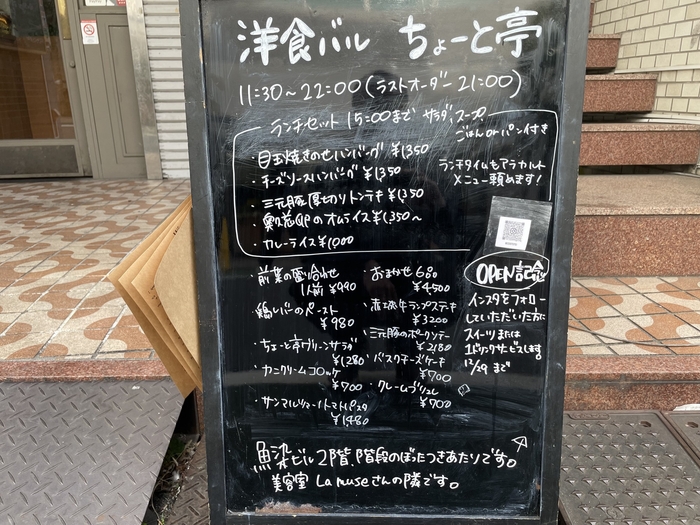 洋食バル ちょーと亭
11:30～22:00(ラストオーダー 21:00)
ランチセット 15:00まで サラダ、スープ
ごはんorパン付き
・目玉焼きのせハンバーグ ¥1350
・チーズソースハンバーグ ¥1350
・三元豚厚切りトンテキ ¥1350
のオムライス ¥1,350～
・カレーライス ¥1000
ランチタイムもアラカルト
メニュー頼めます!
・前菜の盛り合わせ
1人前 ¥990
・鶏レバーのペースト
¥980
・ちょーと亭グリーンサラダ
¥1,280
・カニクリームコロッケ
¥700
・サンマルツァーノトマトパスタ
¥1,480
・おまかせ6品
¥4500
・赤城牛ランプステーキ
¥3200
・三元豚のポークソテー
¥2180
・バスクチーズケーキ
¥700
・クレームブリュレ
¥700
OPEN記念
インスタをフォロー
していただいた方に
スイーツまたは
1ドリンクサービスします!
12/29 まで
魚染ビル2階、階段のぼったつきあたりです。
美容室 La museさんの隣です。